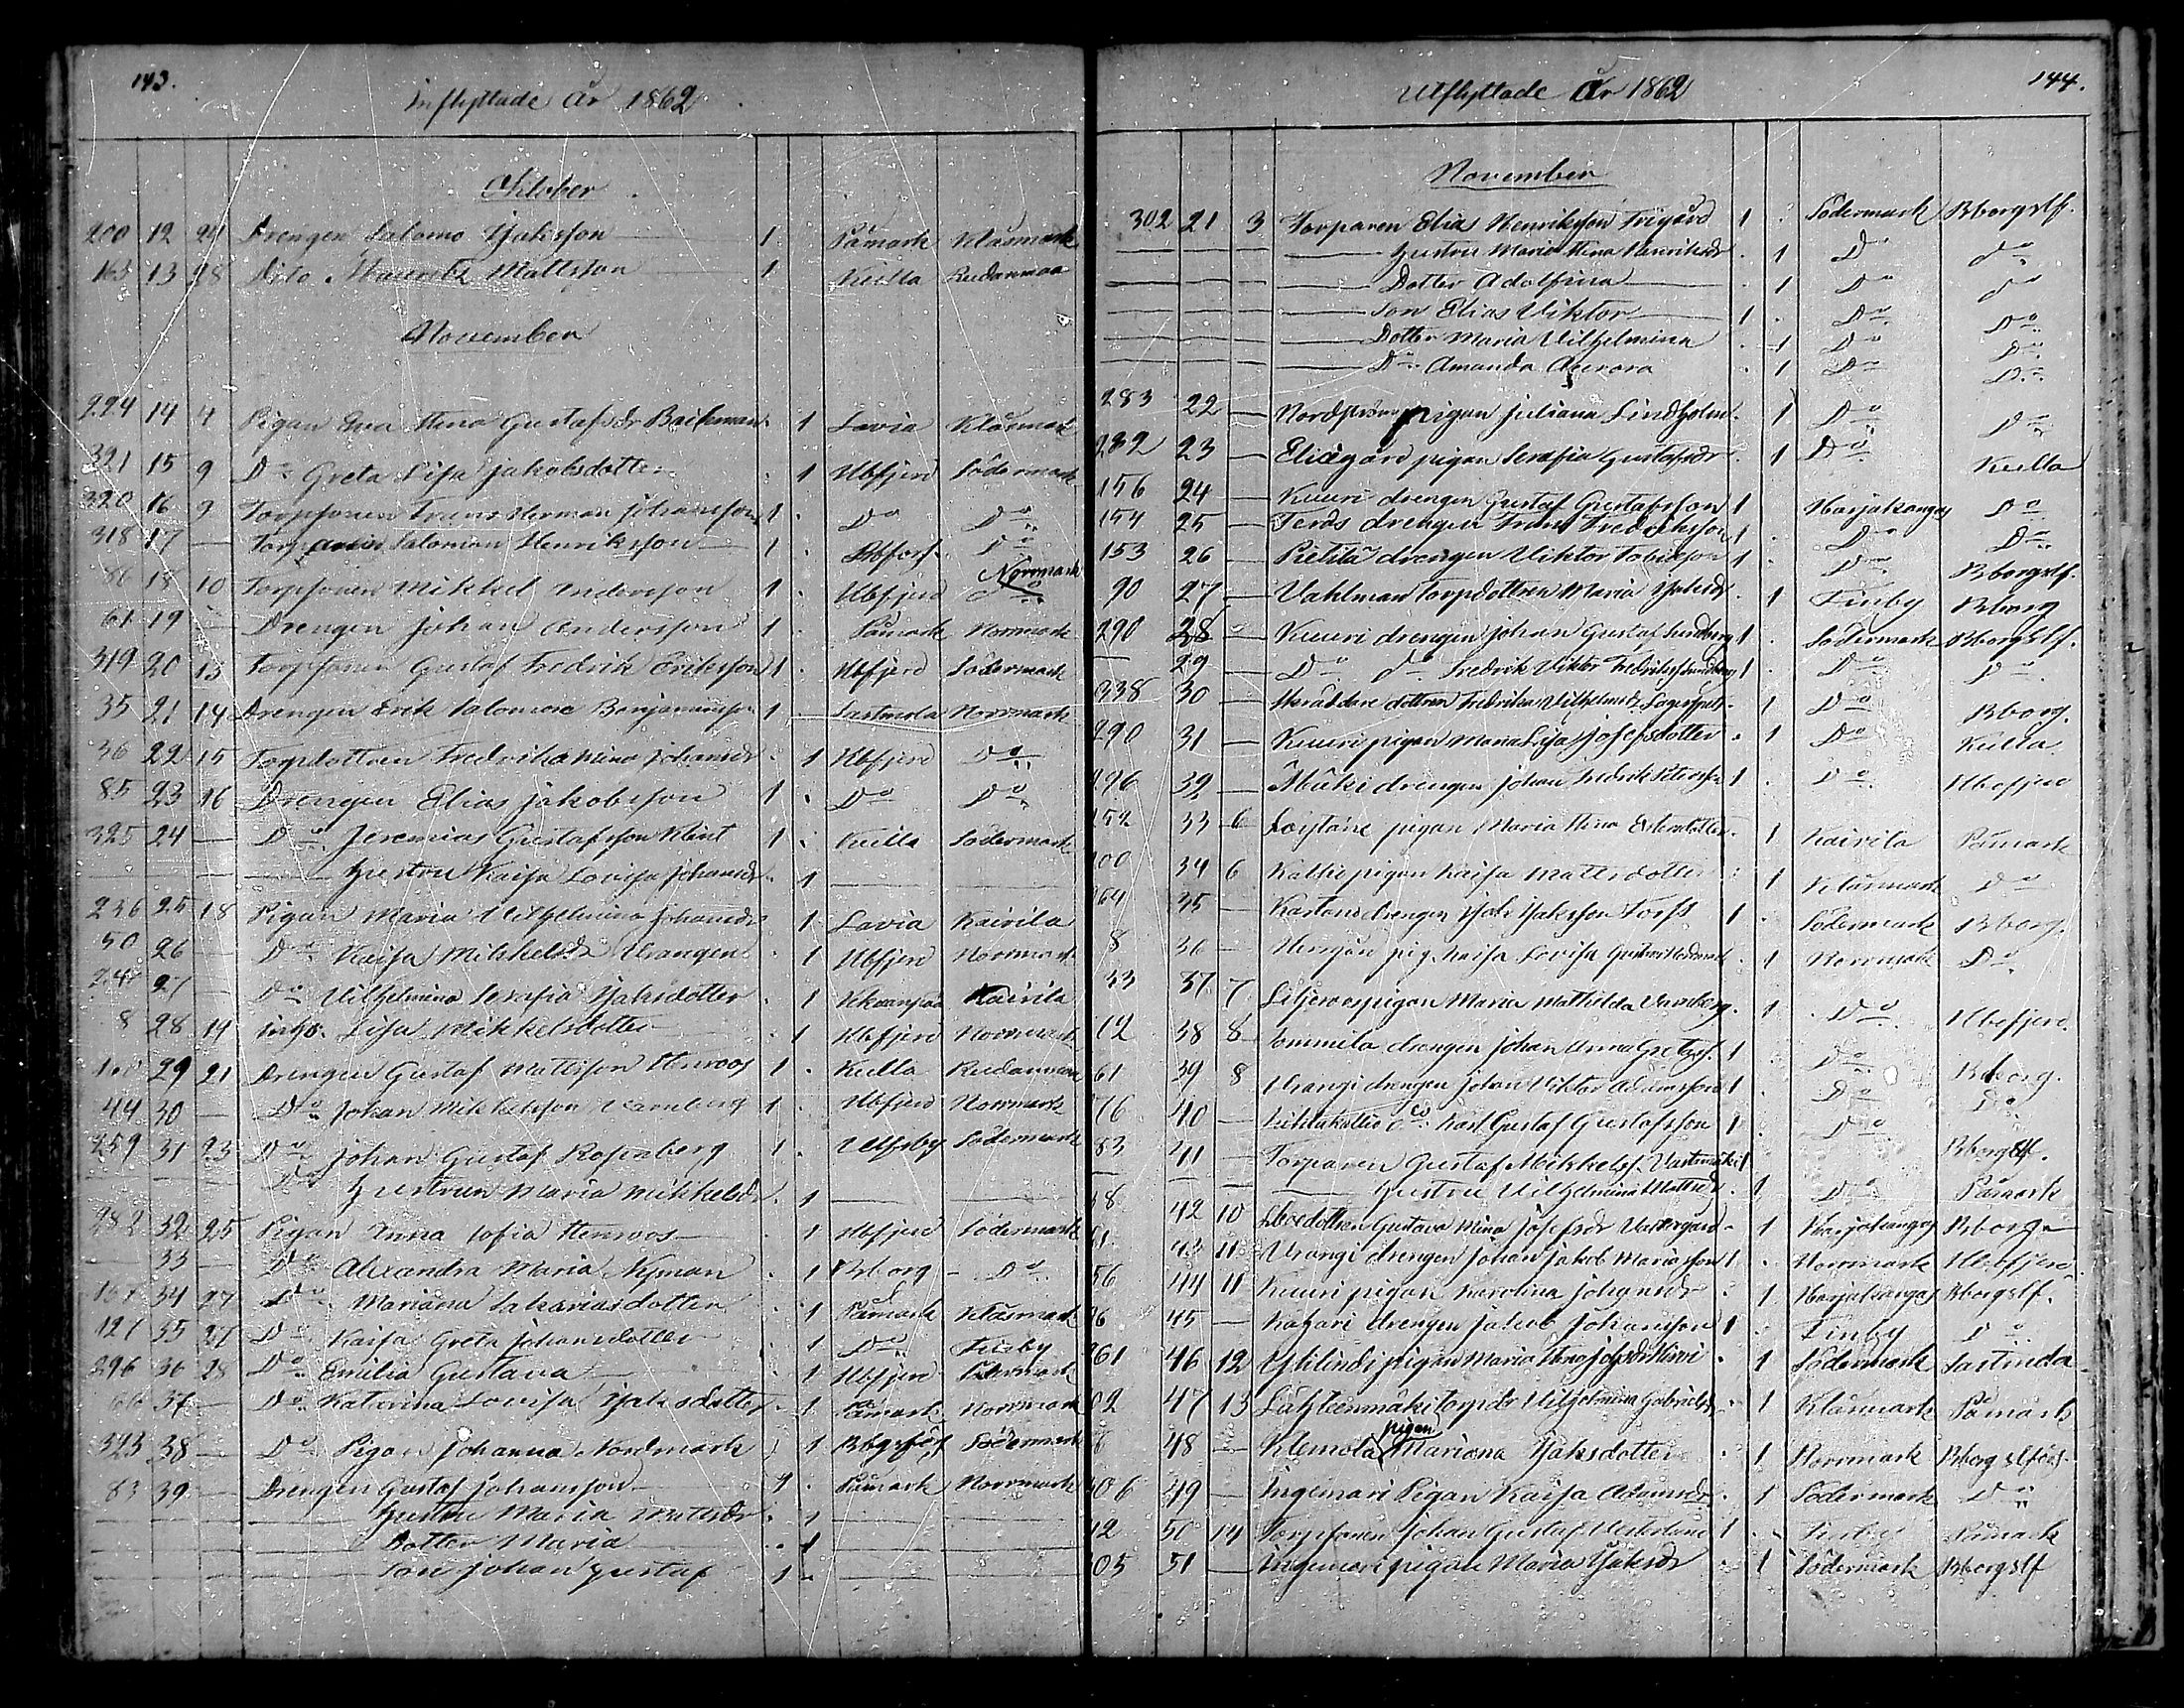 143.
Inflyttade År 1862
Oktober
200 12 24 Drengen Salomo Isaksson 1 . Påmark Klåsmark
163 13 28 Dito Mauritz Mattsson 1 Kulla Rudanmaa
November
224 14 4 Pigan Eva Stina Gustafsdr Backman . 1 Lavia Klåsmark
321 15 9 Do Greta Lisa Jakobsdotter . 1 Ulbfjerd Södermark
320 16 9 Torpsonen Frans Herman Johansson 1 . Do Do
318 17 — Torparen Salomon Henriksson 1 . Do
86 18 10 Torpsonen Mikkel Andersson 1 . Ulbfjerd Norrmark
61 19 — Drengen Johan Andersson 1 . Påmark Norrmark
319 20 13 Torpsonen Gustaf Fredrik Eriksson 1 . Ulbfjerd Södermark
35 21 14 Drengen Erik Salomon Benjaminsson 1 Sastmola Norrmark
36 22 15 Torpdottren Fredrika Mina Johansdr . 1 Ulbfjerd Do
85 23 16 Drengen Elias Jakobsson 1 . Do Do
325 24 — Do Jeremias Gustafsson Klint 1 . Kulla Södermark
— — — Hustru Kaisa Lovisa Johansdr . 1 — —
236 25 18 Pigan Maria Vilhelmina Johansdr . 1 Lavia Kairila
50 26 — Do Kaisa Mikkelsdr Vrangen . 1 Ulbfjerd Norrmark
240 27 — Do Vilhelmina Serafia Isaksdotter . 1 Kairila
8 28 19 Inhys. Lisa Mikkelsdotter . 1 Ulbfjerd Norrmark
29 21 Drengen Gustaf Mattsson Stenroos 1 . Kulla Rudanmaa
44 30 — Do Johan Mikkelsson 1 . Ulbfjerd Norrmark
259 31 23 Do Johan Gustaf Rosenberg 1 . Ulfsby Södermark
Do Hustrun Maria Mikkelsdr . 1 — —
282 32 25 Pigan Anna Sofia Stenroos . 1 Ulbfjerd Södermark
— 33 — Do Alexandra Maria Nyman . 1 Bborg Do
34 27 Do Mariana Sakariasdotter . 1 Påmark Klåsmark
127 35 27 Do Kaisa Greta Johansdotter . 1 Do Finby
296 36 28 Do Emilia Gustava . 1 Ulbfjerd Södermark
66 37 — Do Katarina Lovisa Isaksdotter . 1 Påmark Norrmark
323 38 — Do Pigan Johanna Nordmark . 1 Södermark
83 39 — Drengen Gustaf Johansson 1 . Påmark Norrmark
— — — Hustru Maria Mattsdr . 1 — —
— — — Dotter Maria . 1 — —
— — — Son Johan Gustaf 1 . — —
144.
Utflyttade År 1862
November
302 21 3 Torparen Elias Henriksson Frigård 1 . Södermark Bborgslf.
— — — Hustru Maria Stina Henriksdr . 1 Do do
— — — Dotter Adolfina . 1 Do do
— — — Son Elias Viktor 1 . Do Do
— — — Dotter Maria Vilhelmina . 1 Do Do
— — — Do Amanda Aurora . 1 Do Do
283 22 — Nordström pigan Juliana Lindholm . 1 Do Do
282 23 — Eliägård pigan Serafia Gustafsdr . 1 Do Kulla
156 24 — Kuuri drengen Gustaf Gustafsson 1 Harjakangas Do
154 25 — drengen Frans Fredriksson 1 . Do Do
153 26 — Pietilä drengen Viktor 1 Do Bborgslf.
90 27 — Vahlman torpdottren Maria Isaksdr . 1 Finby Bborg
290 28 — Kuuri drengen Johan Gustaf Lindberg 1 . Södermark Bborgslf.
— 29 — Do do Fredrik Viktor 1 . Do Do
338 30 — dottren Fredrika Vilhelmina . 1 Do Bborg.
290 31 — Kuuri pigan Maria Lisa Josefsdotter . 1 Do Kulla
296 32 — drengen Johan Fredrik Petersson 1 . Do Ulbfjerd
152 33 6 pigan Maria Stina . 1 Kairila Påmark
34 6 Kallio pigan Kaisa Mattsdotter . 1 Klåsmark Do
64 35 — drengen Isak Isaksson Forss 1 . Södermark Bborg.
8 36 — Herrgån pig. Kaisa Lovisa . 1 Norrmark Do
33 37 7 pigan Maria Mathilda . 1 Do Ulbfjerd
12 38 8 Tommila drengen Johan Anna Gretas. 1 Do Bborg.
61 39 8 Vrangi drengen Johan Viktor Adamsson 1 . Do Do
76 40 — Karl Gustaf Gustafsson 1 Do Bborgslf.
83 41 — Torparen Gustaf Mikkelss. 1 Do Påmark
— — — Hustru Vilhelmina Mattsdr . 1
42 10 dottren Gustava Mina Josefsdr Vestergård . 1 Harjakangas Bborg
61 43 11 Vrangi drengen Johan Jakob Mariasson 1 . Norrmark Ulbfjerd
56 44 11 Kuuri pigan Karolina Johansdr . 1 Harjakangas Bborgslf.
45 — drengen Jakob Johansson 1 . Finby Do
261 46 12 Yhilindi pigan Maria Stina . 1 Södermark Sastmola
47 13 Lähteenmäki torpdr Vilhelmina Gabrielsdr . 1 Klåsmark Påmark
48 — Klemola pigan Mariana Isaksdotter . 1 Norrmark
306 49 — Ingemari Pigan Kaisa Adamsdr . 1 Södermark Do
50 14 Torpsonen Johan Gustaf Vesterlund 1 . Finby Påmark
305 51 — Ingemari pigan Maria Isaksdr . 1 Södermark Bborgslf